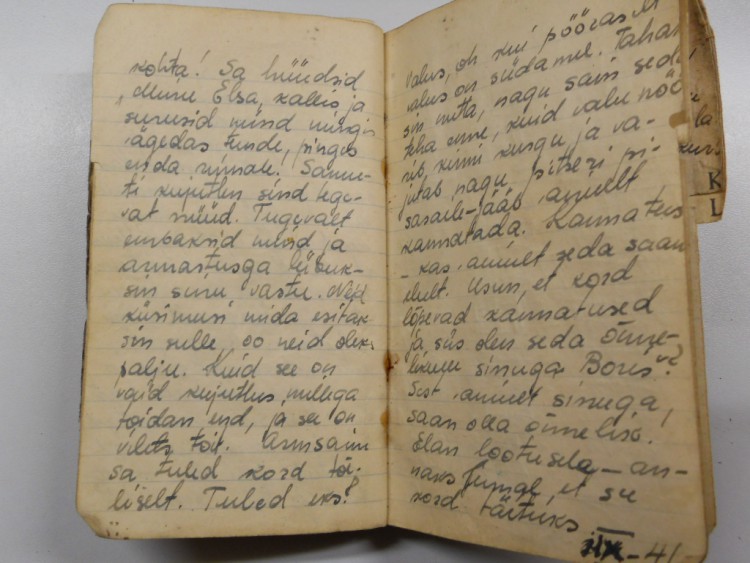 kohta! Sa hüüdsid
„Minu Elsa, kallis ja
surusid mind mingis
ägedas tunde, pinges
enda rinnale. Samu-
ti kujutlen sind tege-
vat nüüd. Tugevalt
embaksid mind ja
armastusga liibuk-
sin sinu vastu. Neid
küsimusi mida esitak-
sin sulle, oo neid oleks
palju. Kuid see on
vaid kujutlus, millega
toidan end, ja see on
vilets toit. Armsaim
sa tuled kord tõe-
liselt. Tuled eks?
valus, oh kui pööraselt
valus on südamel. Tahan
sin nutta, nagu sain seda
teha enne, kuid valu nöö-
rib, kinni kurgu ja va-
jutab nagu pitseri pi-
saraile – jääb ainult
kannatada. Kannatus –
– kas ainult seda saan
elult. Usun, et kord
lõpevad kannatused
ja siis olen seda õnne-
likum sinuga Boris?
Sest ainult sinuga,
saan olla õnnelik.
Elan lootusela – an-
naks Jumal, et see
kord täituks.
IX – 41 –
K
L